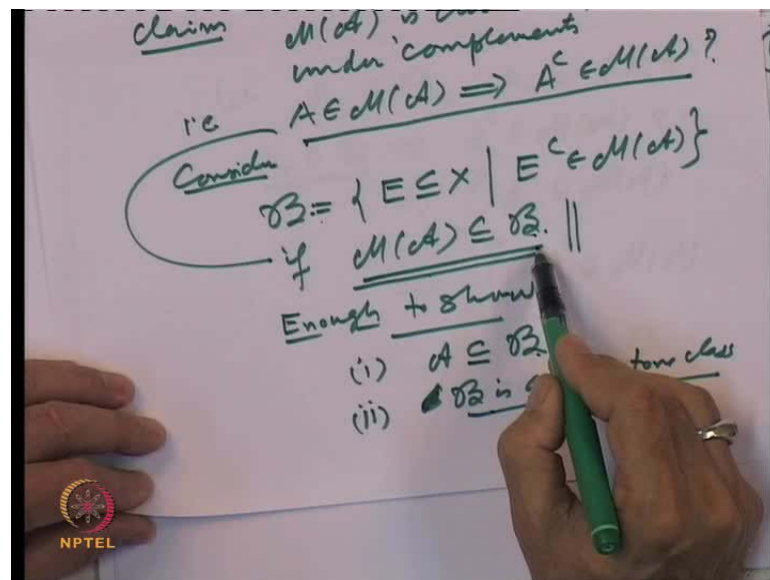 Claim M(A) is
under complements
ie A ∈ M(A) ⟹ A^c ∈ M(A) ?
Consider
B := { E ⊆ X | E^c ∈ M(A) }
if M(A) ⊆ B. ||
Enough to show
(i) A ⊆ B
(ii) B is tone class
NPTEL